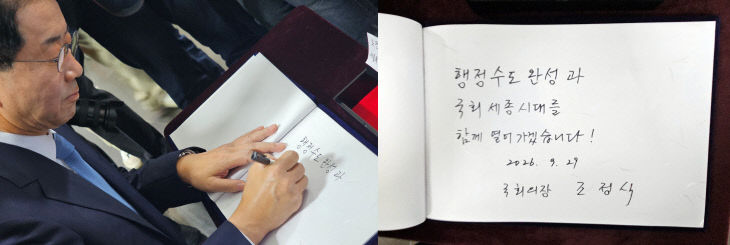 행정수도 완성 과
행정수도 완성 과
국회 세종시대를
함께 열어가겠습니다!
2026. 9. 29
국회의장 조정식